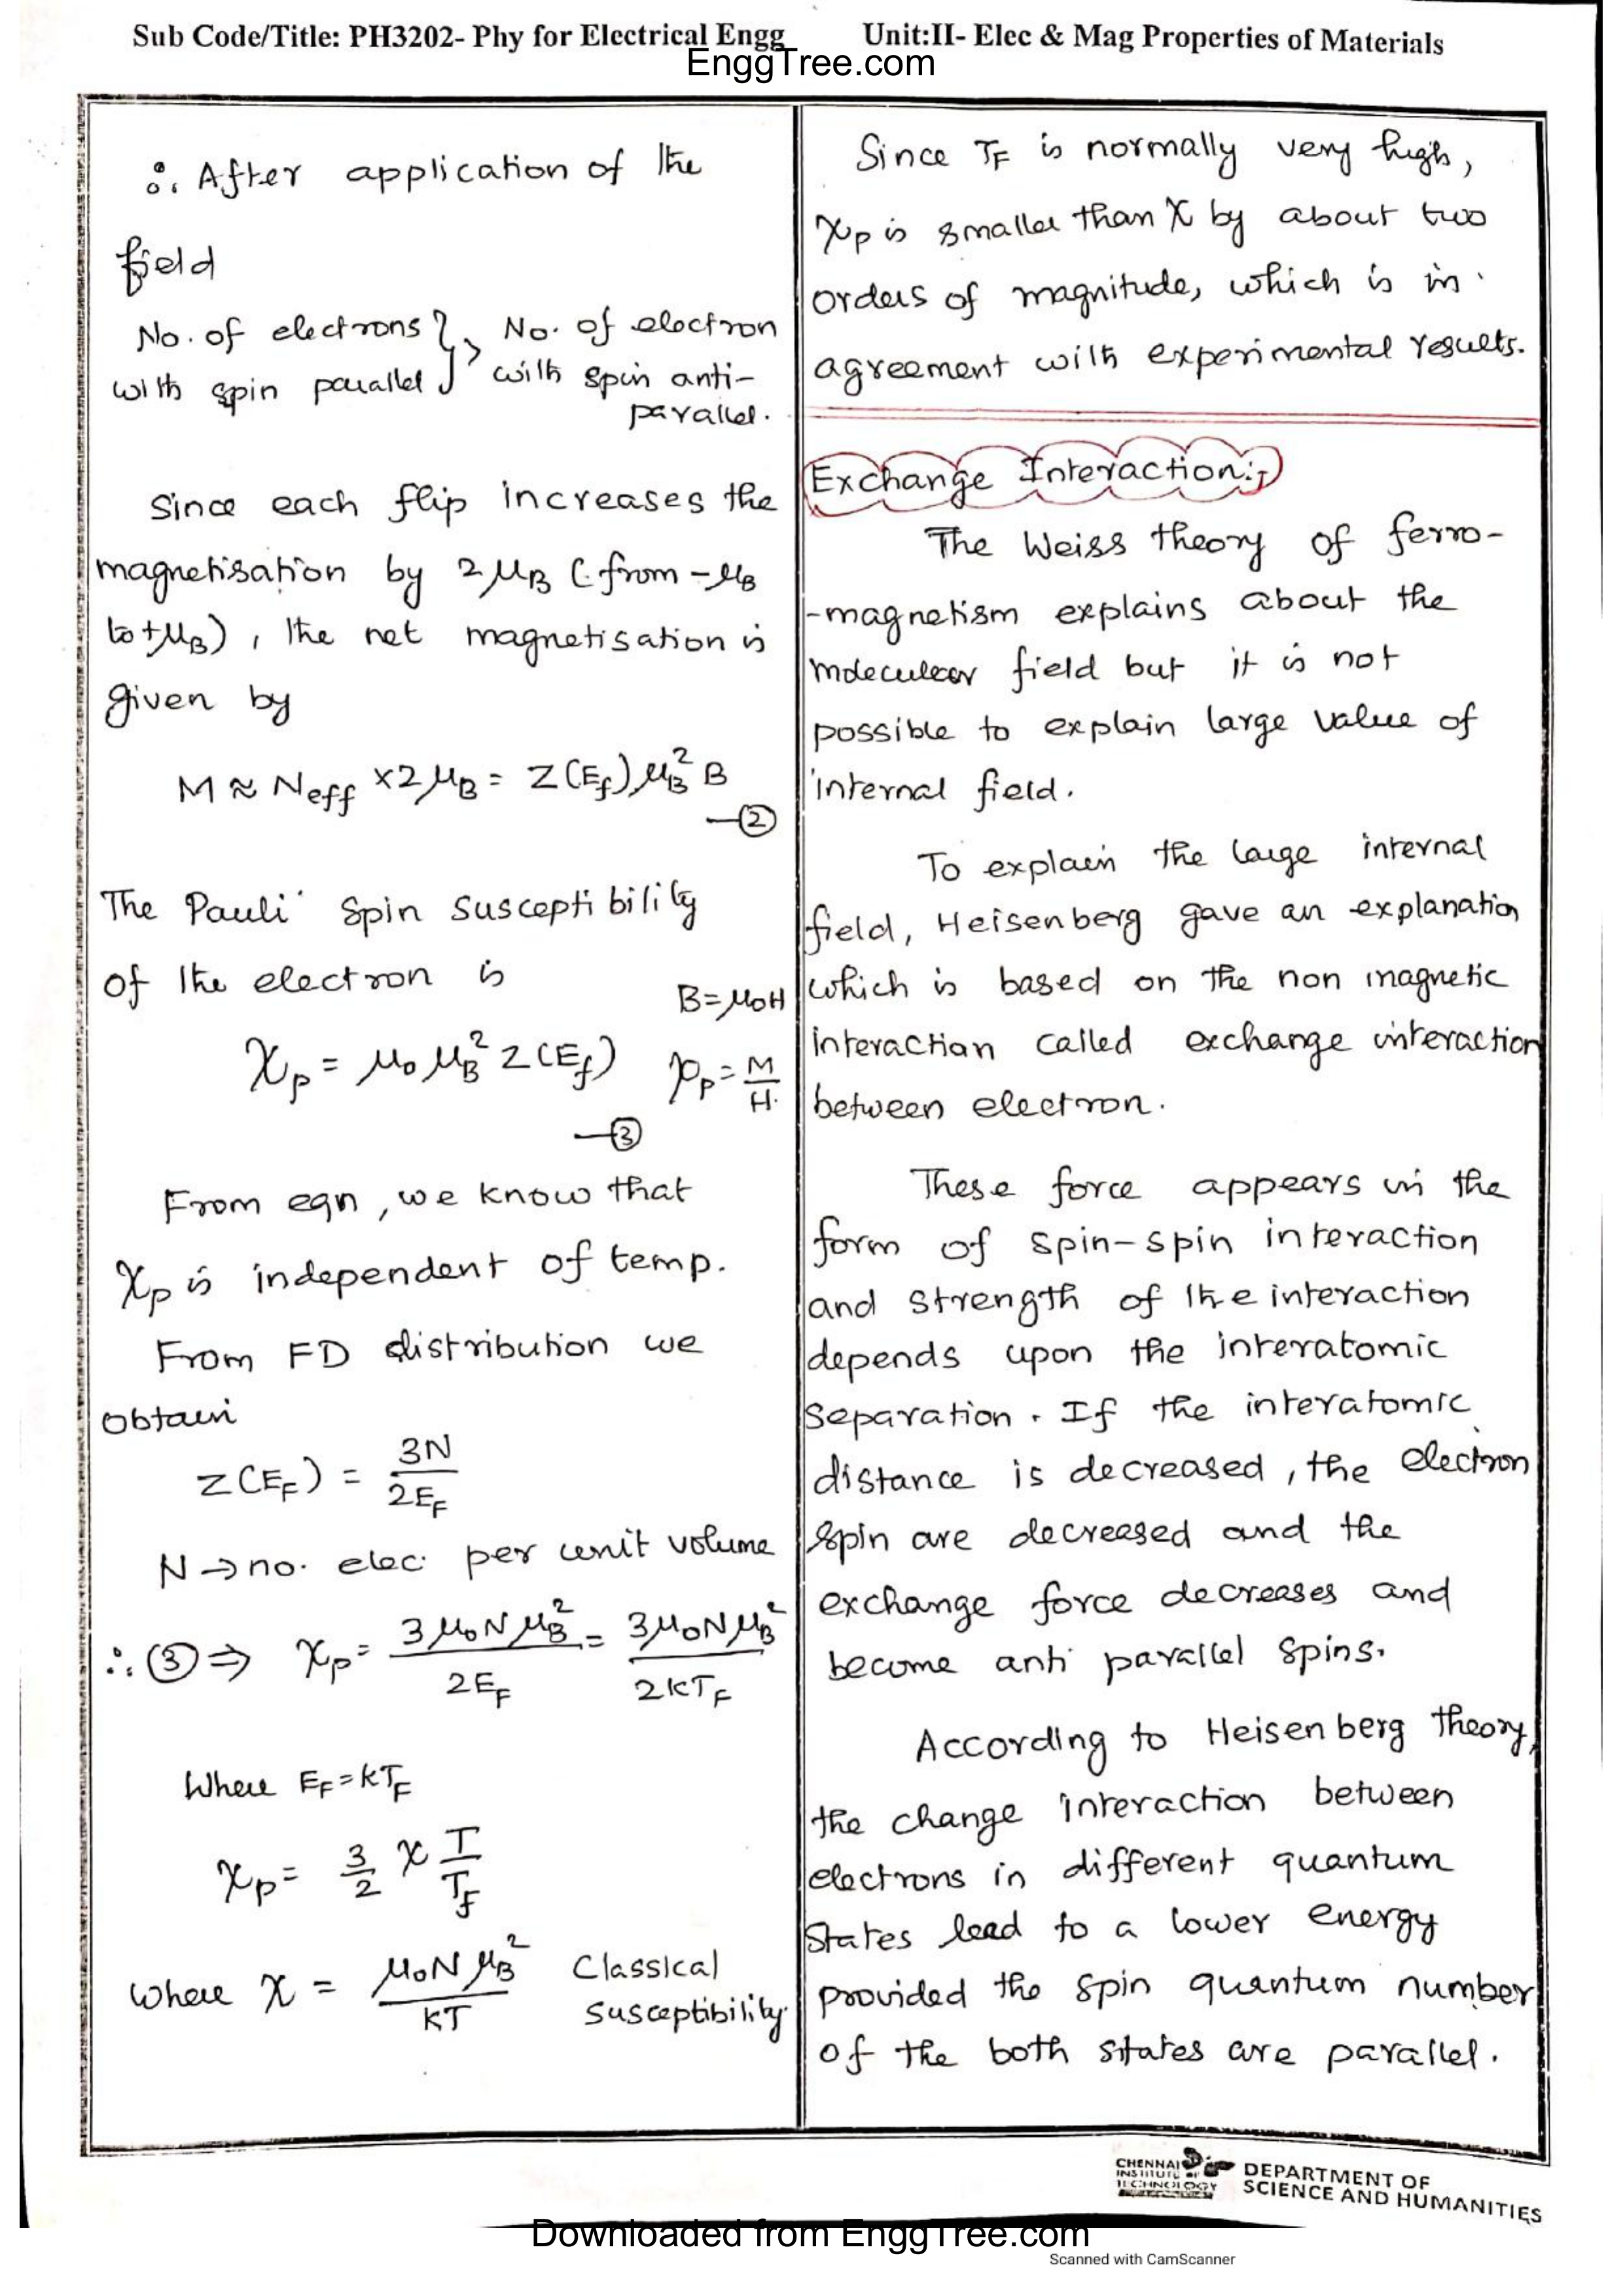 Sub Code/Title: PH3202- Phy for Electrical Engg Unit:II- Elec & Mag Properties of Materials
EnggTree.com
∴ After application of the
field
No. of electrons } > No. of electron
with spin parallel } with spin anti-
parallel.
Since each flip increases the
magnetisation by 2μB (from -μB
to +μB), the net magnetisation is
given by
M ≈ Neff × 2μB = Z(Ef) μB² B
—②
The Pauli Spin Susceptibility
of the electron is
B = μ0H
χp = μ0 μB² Z(Ef) χp = M/H.
—③
From eqn, we know that
χp is independent of temp.
From FD distribution we
obtain
Z(EF) = 3N/2EF
N → no. elec. per unit volume
∴ ③ ⇒ χp = 3μ0NμB²/2EF = 3μ0NμB²/2kTF
Where EF = kTF
χp = 3/2 χ T/Tf
where χ = μ0NμB²/kT Classical
susceptibility
Since TF is normally very high,
χp is smaller than χ by about two
orders of magnitude, which is in
agreement with experimental results.
Exchange Interaction:-
The Weiss theory of ferro-
-magnetism explains about the
moleculear field but it is not
possible to explain large value of
internal field.
To explain the large internal
field, Heisenberg gave an explanation
which is based on the non magnetic
interaction called exchange interaction
between electron.
These force appears in the
form of spin-spin interaction
and strength of the interaction
depends upon the interatomic
separation. If the interatomic
distance is decreased, the electron
spin are decreased and the
exchange force decreases and
become anti parallel spins.
According to Heisenberg theory,
the change interaction between
electrons in different quantum
states lead to a lower energy
provided the spin quantum number
of the both states are parallel.
CHENNAI
INSTITUTE OF
TECHNOLOGY
DEPARTMENT OF
SCIENCE AND HUMANITIES
Downloaded from EnggTree.com
Scanned with CamScanner